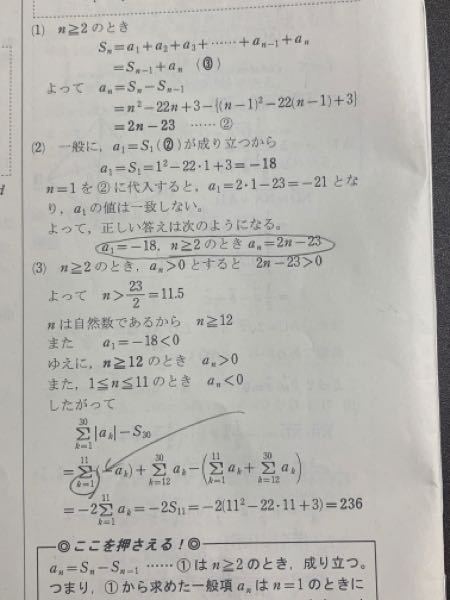 (1) n≧2のとき
Sₙ=a₁+a₂+a₃+……+aₙ₋₁+aₙ
=Sₙ₋₁+aₙ (③)
よって aₙ=Sₙ−Sₙ₋₁
=n²−22n+3−{(n−1)²−22(n−1)+3}
=2n−23 ……②
(2) 一般に,a₁=S₁(②)が成り立つから
a₁=S₁=1²−22・1+3=−18
n=1を②に代入すると,a₁=2・1−23=−21とな
り,a₁の値は一致しない。
よって,正しい答えは次のようになる。
a₁=−18,n≧2のとき aₙ=2n−23
(3) n≧2のとき,aₙ>0とすると 2n−23>0
よって n>23/2=11.5
nは自然数であるから n≧12
また a₁=−18<0
ゆえに,n≧12のとき aₙ>0
また,1≦n≦11のとき aₙ<0
したがって
∑[k=1→30]|aₖ|−S₃₀
=∑[k=1→11](−aₖ)+∑[k=12→30]aₖ−(∑[k=1→11]aₖ+∑[k=12→30]aₖ)
=−2∑[k=1→11]aₖ=−2S₁₁=−2(11²−22・11+3)=236
◎ここを押さえる!◎
aₙ=Sₙ−Sₙ₋₁ ……①はn≧2のとき,成り立つ。
つまり,①から求めた一般項aₙはn=1のときに